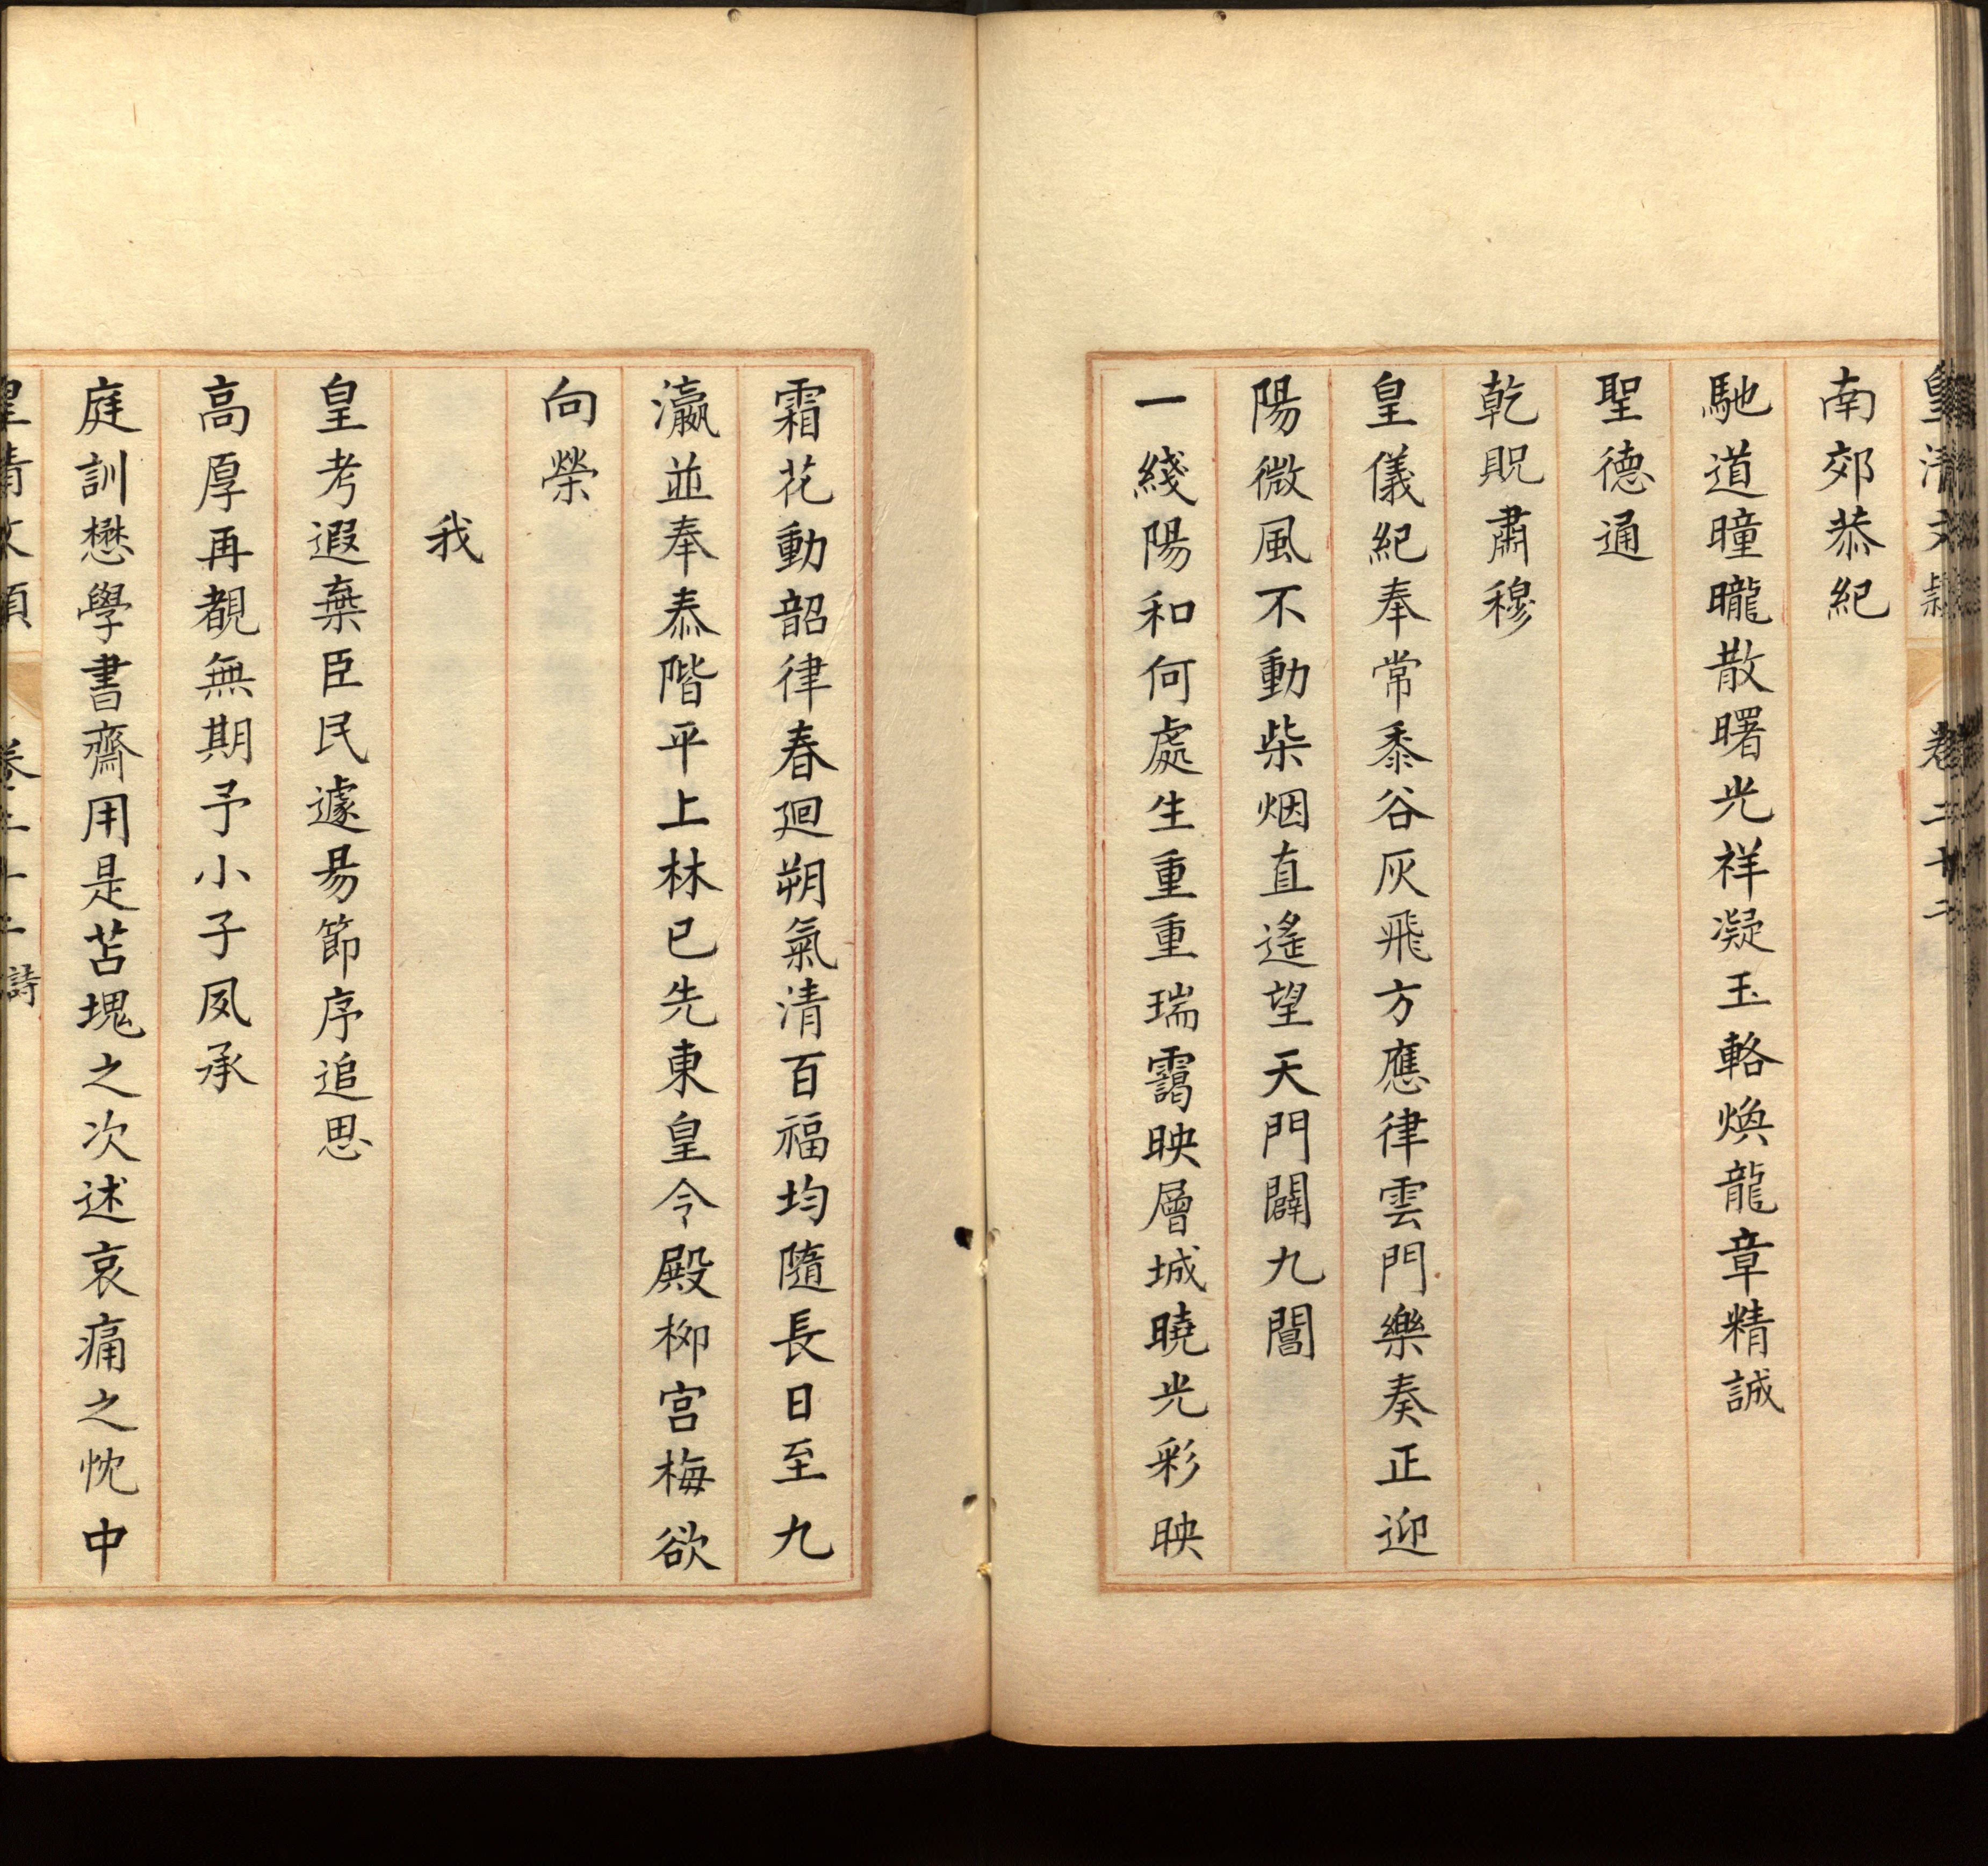 皇清文穎 卷二十二
南郊恭紀
馳道曈曨散曙光祥凝玉輅煥龍章精誠
聖德通
乾貺肅穆
皇儀紀奉常黍谷灰飛方應律雲門樂奏正迎
陽微風不動柴烟直遙望天門闢九閶
一綫陽和何處生重重瑞靄映層城曉光彩映
霜花動韶律春廻朔氣清百福均隨長日至九
瀛並奉泰階平上林已先東皇令殿柳宮梅欲
向榮
我
皇考遐棄臣民遽易節序追思
高厚再覩無期予小子夙承
庭訓懋學書齋用是苫塊之次述哀痛之忱中
皇清文穎 卷二十二 詩